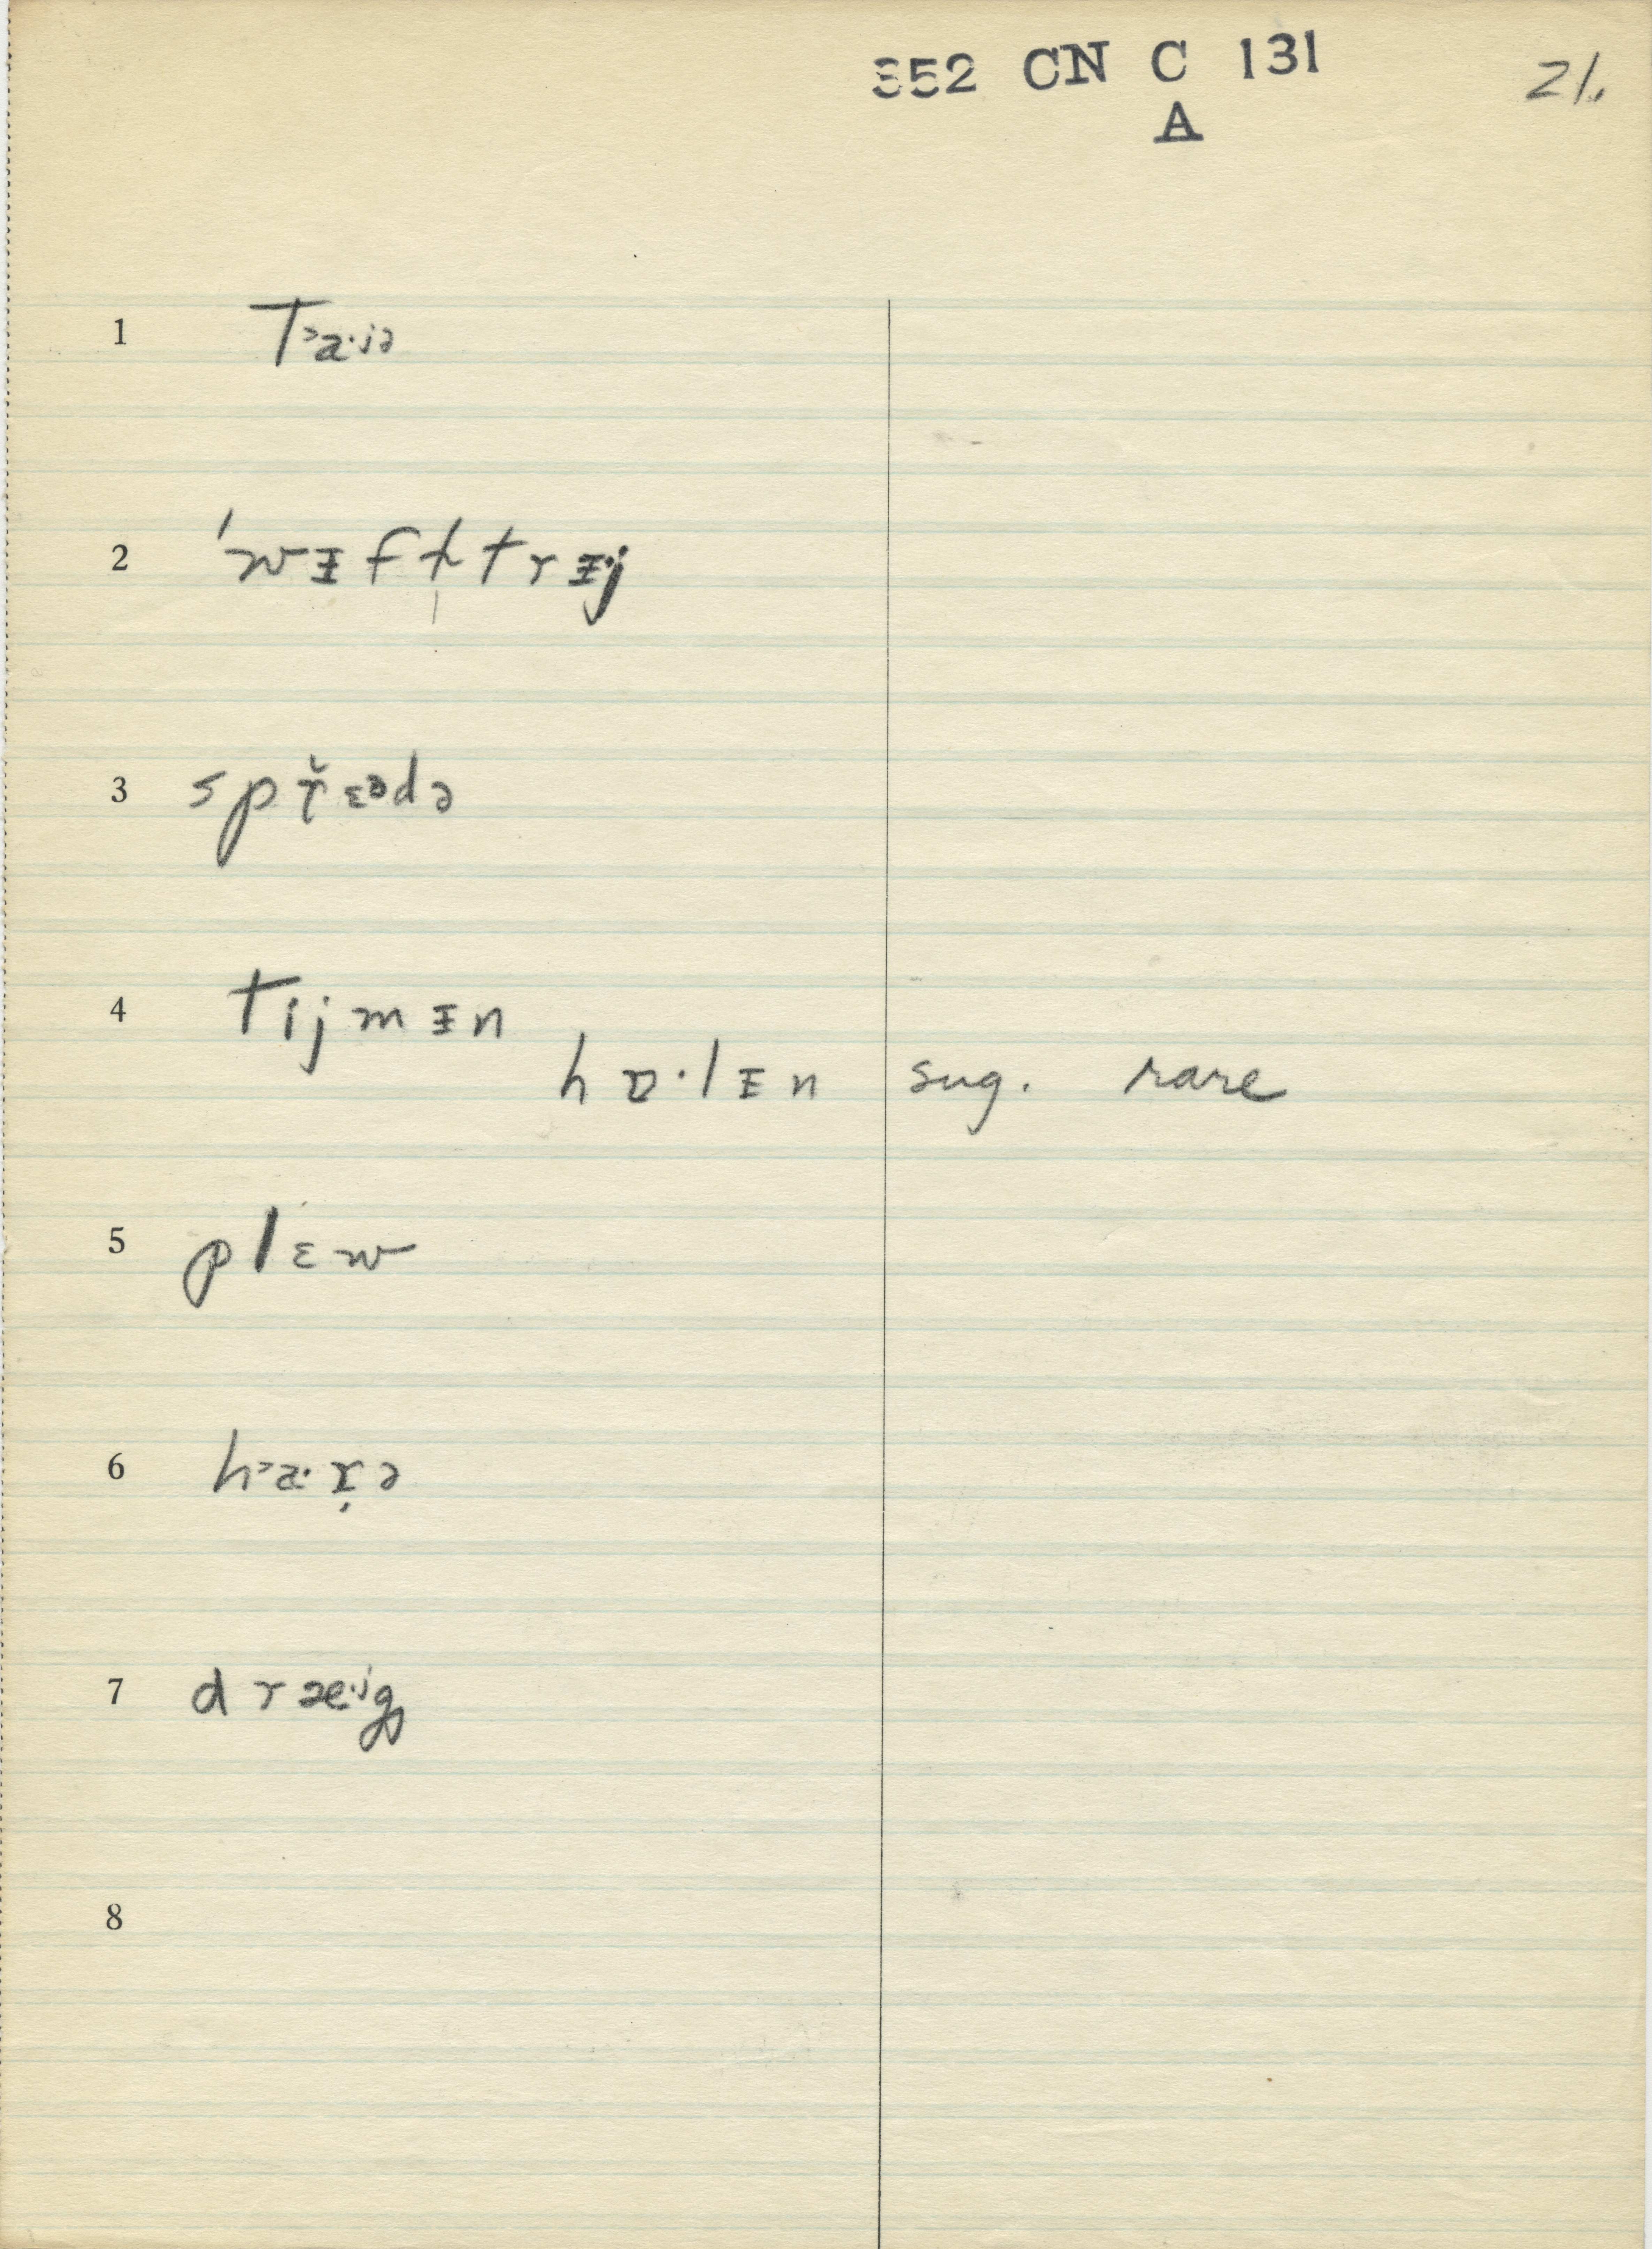 352 CN C 131
A
21.
1 Tᵊa·ᶦᵊ
2 ˈwɪfl̩trɪj
3 spřɛᵊdə
4 tijmɪn
hɒ·lɪn sug. rare
5 plɛw
6 hᵊa·ɤ̣ə
7 dræ·ʲg
8